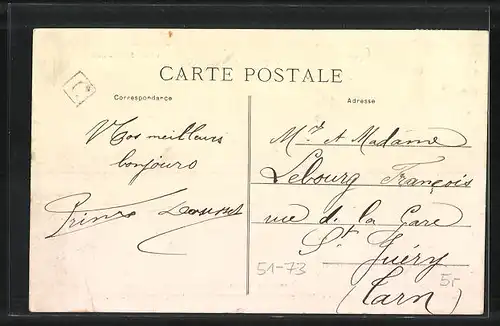 CARTE POSTALE
Correspondance
Adresse
Nos meilleurs
bonjours
Mr et Madame
Lebourg François
rue de la Gare
St Juéry
(Tarn)
51-73
5,-